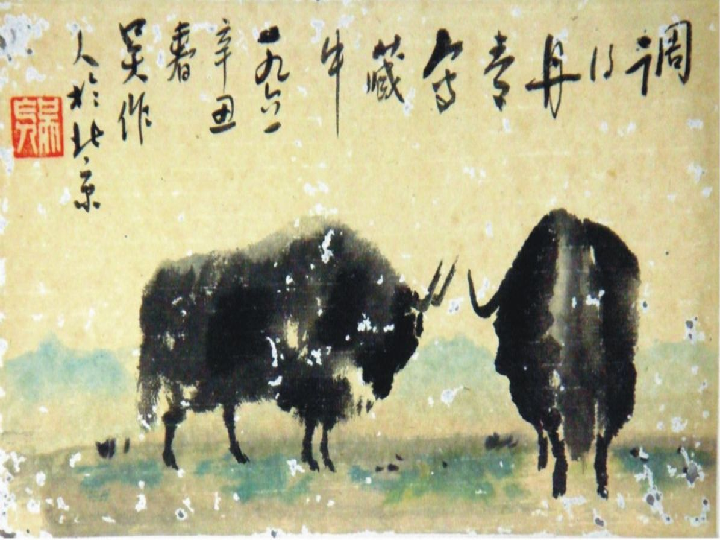 调得丹青写藏牛
一九六一
辛丑
春
吴作
人於北京